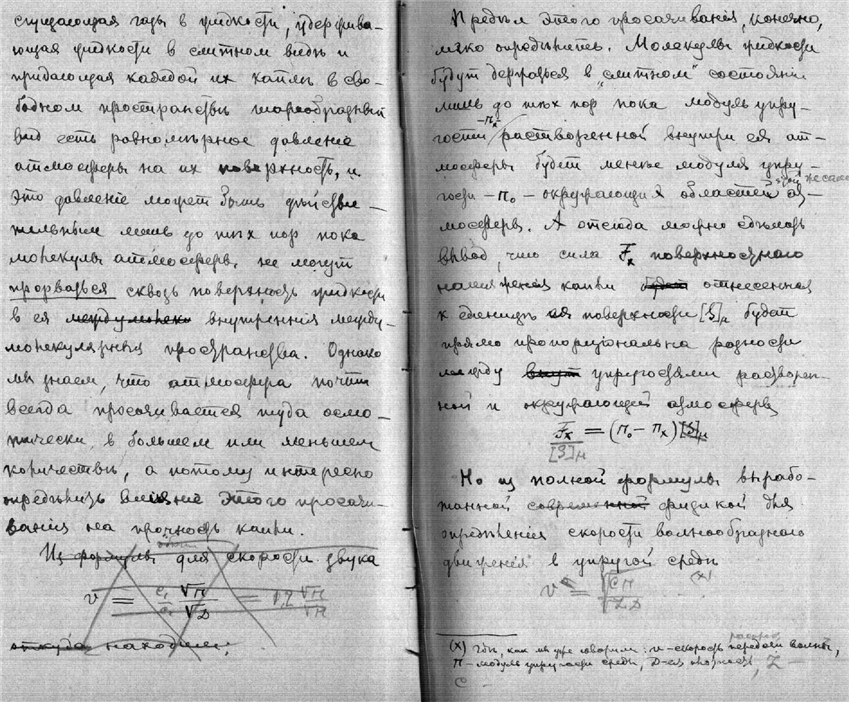 сгущающая газы в жидкости, удержива-
ющая жидкости в слитном видѣ и
придающая каждой их каплѣ в сво-
бодном пространствѣ шарообразный
вид есть равномѣрное давленіе
атмосферы на их поверхность, и
это давленіе может быть дѣйстви-
тельным лишь до тѣх пор пока
молекулы атмосферы не могут
прорваться сквозь поверхность жидкости
в ея внутреннія между-
молекулярныя пространства. Однако
мы знаем, что атмосфера почти
всегда просачивается туда осмо-
тически, в большем или меньшем
количествѣ, а потому интересно
опредѣлить вліяніе этого просачи-
ванія на прочность капли.
Из формулы для скорости звука
v =
откуда находим:
Предѣл этого просачиванія, конечно,
легко опредѣлить. Молекулы жидкости
будут держаться в „слитном" состояніи
лишь до тѣх пор пока модуль упру-
гости -п_x- растворенной внутри ея ат-
мосферы будет менѣе модуля упру-
гости -п₀- окружающих областей той же самой ат-
мосферы. А отсюда можно сдѣлать
вывод, что сила F_x поверхностнаго
натяженія капли отнесенная
к единицѣ ея поверхности [S]_н будет
прямо пропорціональна разности
между упругостями растворен-
ной и окружающей атмосферы
F_x/[S]_н = (п₀ - п_x)[S]_н
Но из полной формулы вырабо-
танной современной физикой для
опредѣленія скорости волнообразнаго
движенія в упругой средѣ (x)
v =
(x) Гдѣ, как мы уже говорили: v - скорость передачи волны,
п - модуль упругости среды, D - ея плотность, Z -
c -